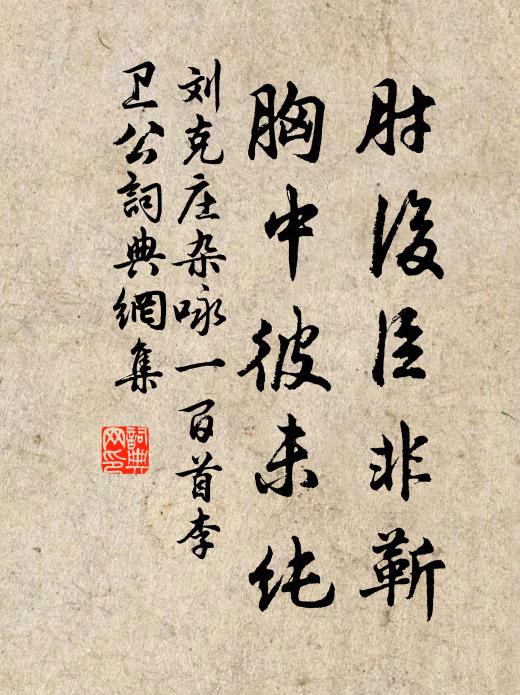 肘後臣非蘄
胸中彼未纯
刘克庄杂咏一百首李
卫公詞典網集
詞典
网印